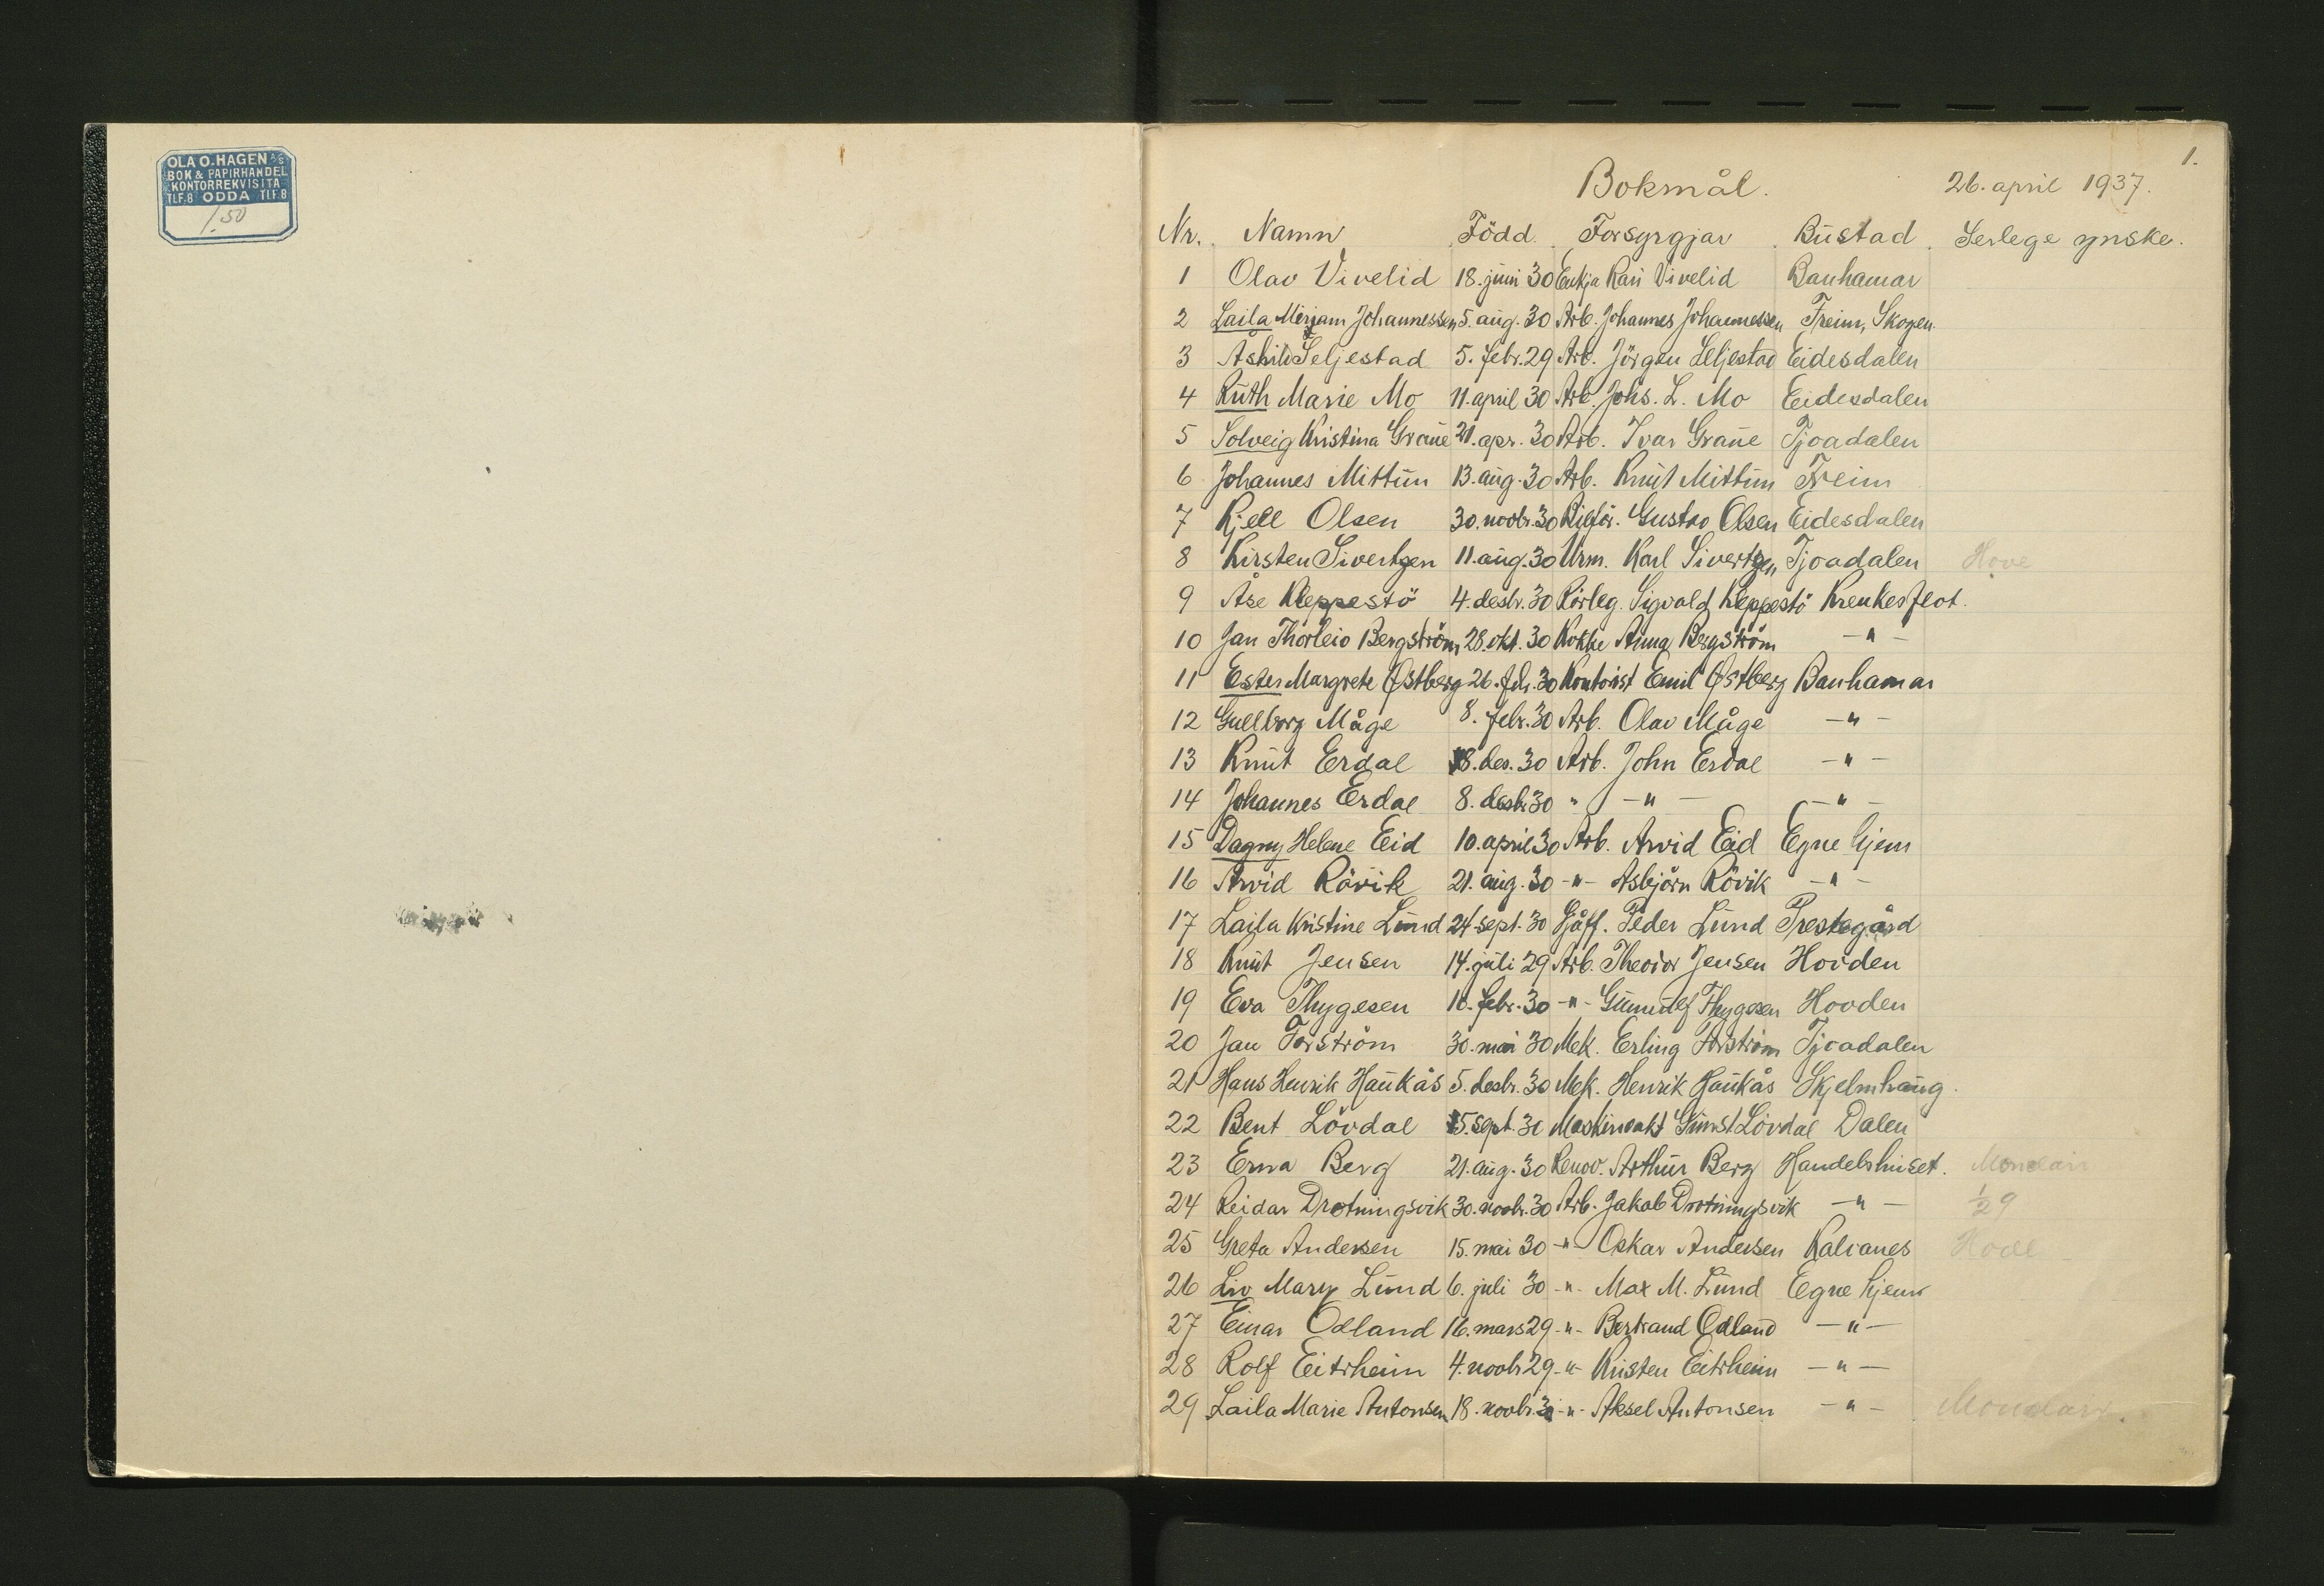 OLA O. HAGEN A/S
BOK & PAPIRHANDEL
KONTORREKVISITA
TLF. 8 ODDA TLF. 8
1.50
1.
Bokmål. 26. april 1937.
Nr. Namn Född. Forsyrgjar Bustad Serlege ynske.
1 Olav Vivelid 18. juni 30 Enkja Kari Vivelid Bauhamar
2 Laila Mirjam Johannessen 5. aug. 30 Arb. Johannes Johannessen Freim, Skogen
3 Åshild Seljestad 5. febr. 29 Arb. Jörgen Seljestad Eidesdalen
4 Ruth Marie Mo 11. april 30 Arb. Johs. L. Mo Eidesdalen
5 Solveig Kristina Graue 21. apr. 30 Arb. Ivar Graue Tjoadalen
6 Johannes Mittun 13. aug. 30 Arb. Knut Mittun Freim
7 Kjell Olsen 30. novbr. 30 Gustav Olsen Eidesdalen
8 Kirsten Sivertsen 11. aug. 30 Urm. Karl Sivertsen Tjoadalen Hove
9 Åse Kleppestö 4. desbr. 30 Rörleg. Sigvald Kleppestö Krenkesflot.
10 Jan Thorleiv Bergström 28. okt. 30 Kokke Anna Bergström -"-
11 Ester Margrete Østberg 26. feb. 30 Kontorist Emil Østberg Bauhamar
12 Gullborg Måge 8. febr. 30 Arb. Olav Måge -"-
13 Knut Erdal 8. des. 30 Arb. John Erdal -"-
14 Johannes Erdal 8. desbr. 30 " -"- -"-
15 Dagny Helene Eid 10. april 30 Arb. Arvid Eid Egne hjem
16 Arvid Rövik 21. aug. 30 -"- Asbjörn Rövik -"-
17 Laila Kristine Lund 24. sept. 30 Sjåff. Peder Lund Prestegård
18 Knut Jensen 14. juli 29 Arb. Theodor Jensen Hovden
19 Eva Thygesen 10. febr. 30 -"- Gunnulf Thygesen Hovden
20 Jan Forström 30. mai 30 Mek. Erling Forström Tjoadalen
21 Hans Henrik Haukås 5. desbr. 30 Mek. Henrik Haukås Skjelmhaug.
22 Bent Lövdal 5. sept. 30 Maskinvakt Lövdal Dalen
23 Erna Berg 21. aug. 30 Renov. Arthur Berg Handelshuset.
24 Reidar Drotningsvik 30. novbr. 30 Arb. Jakob Drotningsvik -"- 1/29
25 Greta Andersen 15. mai 30 -"- Oskar Andersen Kalvanes
26 Liv Mary Lund 6. juli 30 -"- Max M. Lund Egne hjem
27 Einar Odland 16. mars 29 -"- Bertrand Odland -"-
28 Rolf Eitrheim 4. novbr 29 -"- Kristen Eitrheim -"-
29 Laila Marie Antonsen 18. novbr. 30 -"- Aksel Antonsen -"-